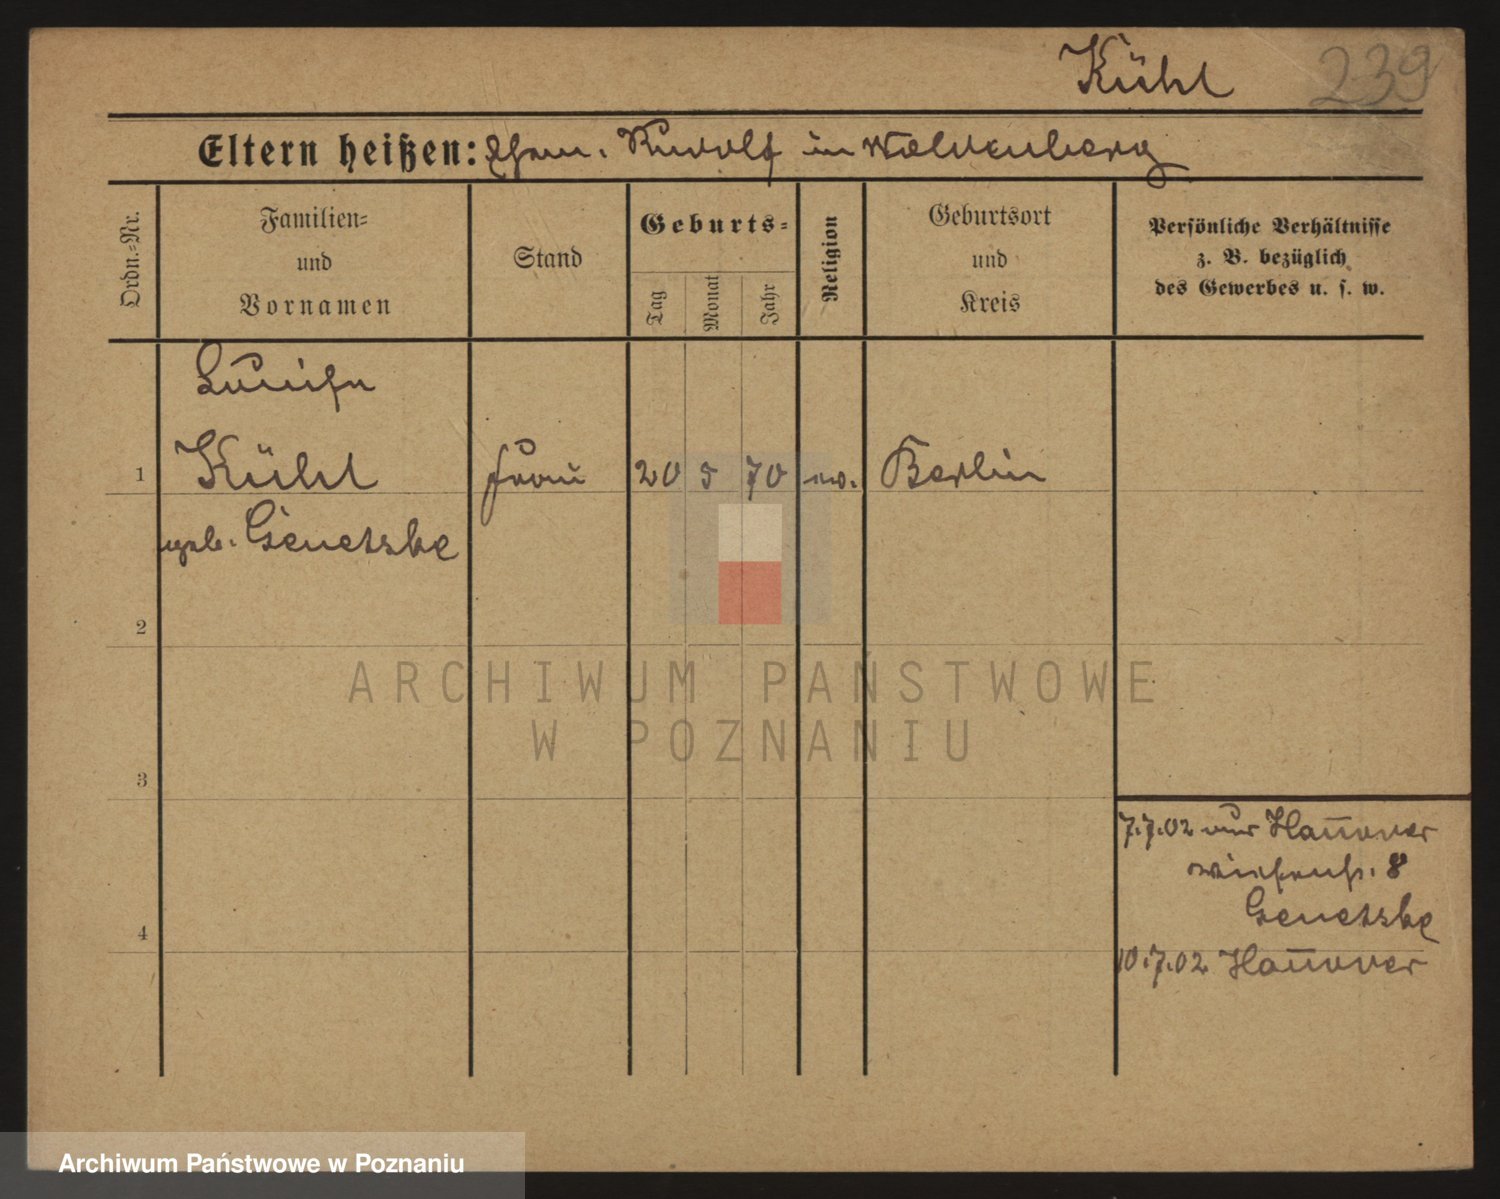 Kühl 239
Eltern heißen: Ehem. Rudolf in Woldenberg
Ordn.-Nr.
Familien-
und
Vornamen
Stand
Geburts-
Tag
Monat
Jahr
Religion
Geburtsort
und
Kreis
Persönliche Verhältnisse
z. B. bezüglich
des Gewerbes u. s. w.
Luise
1 Kühl Frau 20 5 70 ev. Berlin
geb. Genetzke
2
3
4
7.7.02 nur Hannover
8
Genetzke
10.7.02 Hannover
ARCHIWUM PAŃSTWOWE
W POZNANIU
Archiwum Państwowe w Poznaniu